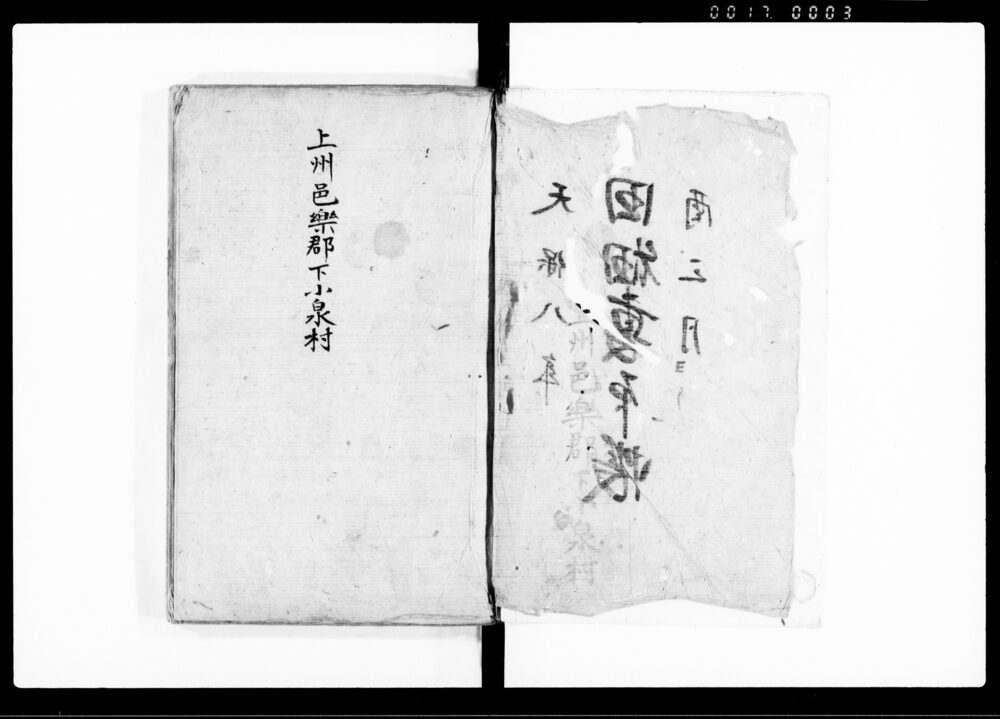 0017. 0003
天保八年
田畑帳
酉三月
上州邑樂郡下小泉村
上州邑樂郡下小泉村